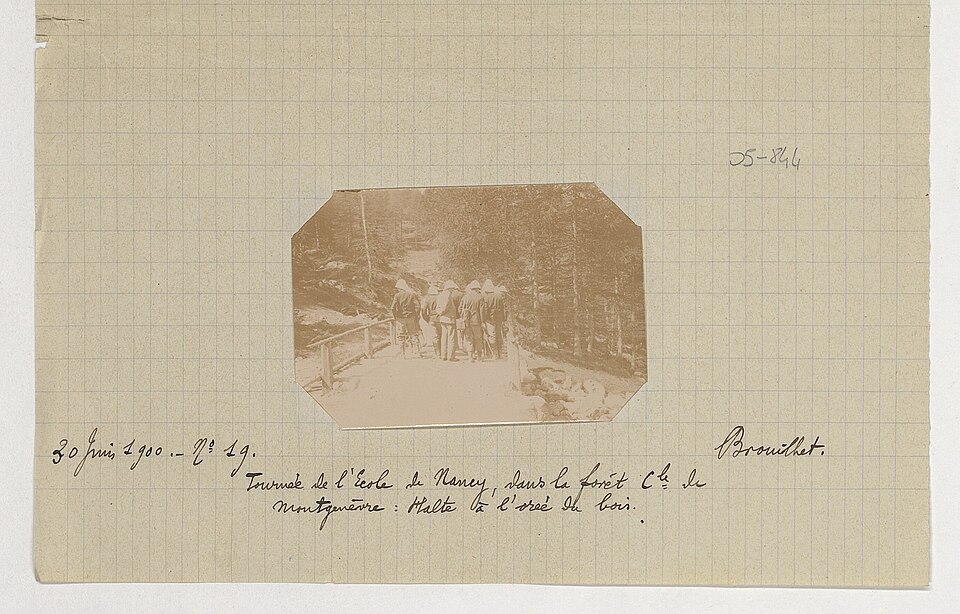 D5-844
30 Juin 1900.- Nº 19.
Brouilhet.
Tournée de l'Ecole de Nancy, dans la forêt Cle de
Montgenèvre : Halte à l'orée du bois.